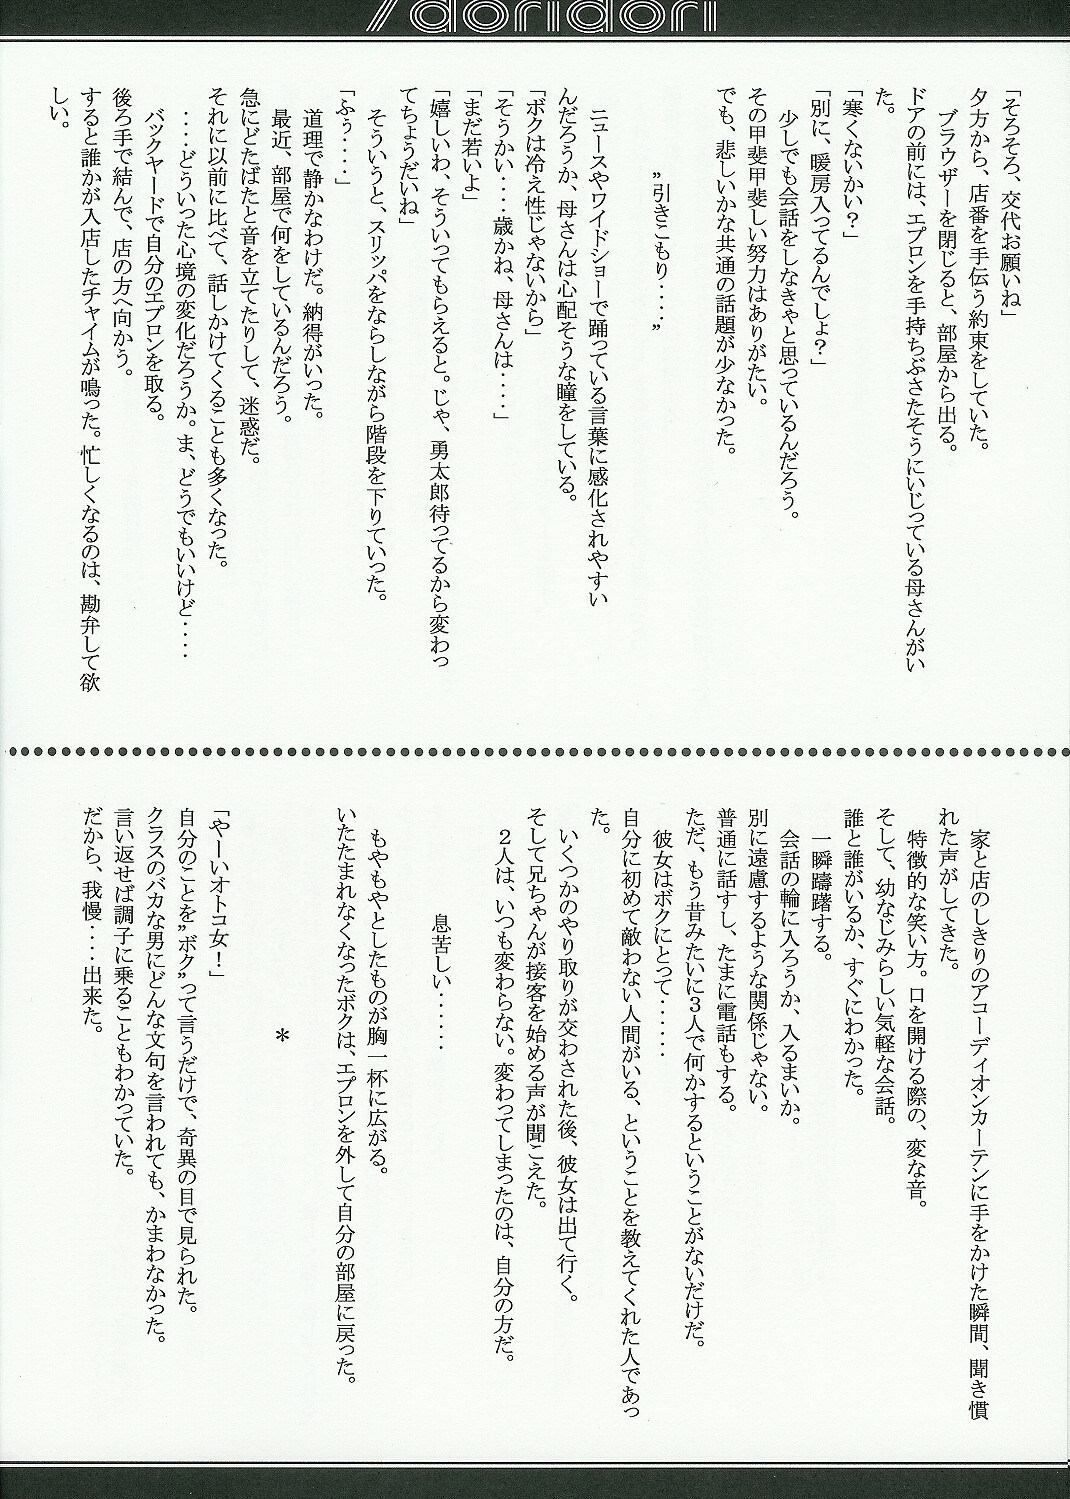 /doridori
「そろそろ、交代お願いね」
夕方から、店番を手伝う約束をしていた。
ブラウザーを閉じると、部屋から出る。
ドアの前には、エプロンを手持ちぶさたそうにいじっている母さんがい
た。
「寒くないかい？」
「別に、暖房入ってるんでしょ？」
少しでも会話をしなきゃと思っているんだろう。
その甲斐甲斐しい努力はありがたい。
でも、悲しいかな共通の話題が少なかった。
〝引きこもり‥‥〟
ニュースやワイドショーで踊っている言葉に感化されやすい
んだろうか、母さんは心配そうな瞳をしている。
「ボクは冷え性じゃないから」
「そうかい‥‥歳かね、母さんは‥‥」
「まだ若いよ」
「嬉しいわ、そういってもらえると。じゃ、勇太郎待ってるから変わっ
てちょうだいね」
そういうと、スリッパをならしながら階段を下りていった。
「ふぅ‥‥」
道理で静かなわけだ。納得がいった。
最近、部屋で何をしているんだろう。
急にどたばたと音を立てたりして、迷惑だ。
それに以前に比べて、話しかけてくることも多くなった。
‥‥どういった心境の変化だろうか。ま、どうでもいいけど‥‥
バックヤードで自分のエプロンを取る。
後ろ手で結んで、店の方へ向かう。
すると誰かが入店したチャイムが鳴った。忙しくなるのは、勘弁して欲
しい。
家と店のしきりのアコーディオンカーテンに手をかけた瞬間、聞き慣
れた声がしてきた。
特徴的な笑い方。口を開ける際の、変な音。
そして、幼なじみらしい気軽な会話。
誰と誰がいるか、すぐにわかった。
一瞬躊躇する。
会話の輪に入ろうか、入るまいか。
別に遠慮するような関係じゃない。
普通に話すし、たまに電話もする。
ただ、もう昔みたいに３人で何かするということがないだけだ。
彼女はボクにとって‥‥‥
自分に初めて敵わない人間がいる、ということを教えてくれた人であっ
た。
いくつかのやり取りが交わされた後、彼女は出て行く。
そして兄ちゃんが接客を始める声が聞こえた。
２人は、いつも変わらない。変わってしまったのは、自分の方だ。
息苦しい‥‥‥
もやもやとしたものが胸一杯に広がる。
いたたまれなくなったボクは、エプロンを外して自分の部屋に戻った。
＊
「やーいオトコ女！」
自分のことを〝ボク〟って言うだけで、奇異の目で見られた。
クラスのバカな男にどんな文句を言われても、かまわなかった。
言い返せば調子に乗ることもわかっていた。
だから、我慢‥‥出来た。